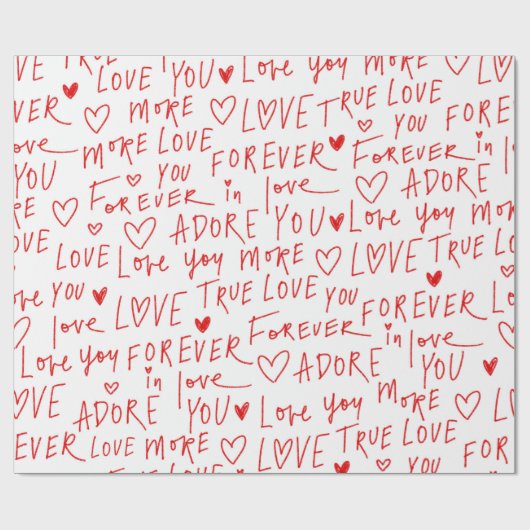 OVE TRUE LOVE YOU Love you more LOVE
EVER more LOVE TRUE LOVE YOU FOREVER
MORE LOVE YOU FOREVER FOREVER in love
YOU FOREVER in love ADORE
RE ADORE YOU Love you more
OVE LOVE Love you more LOVE TRUE LOVE
YOU LOVE TRUE LOVE YOU FOREVER
love FOREVER in love
Love you FOREVER ADORE YOU
OVE ADORE in love YOU Love you more
EVER LOVE MORE LOVE TRUE LOVE FOREVER
YOU